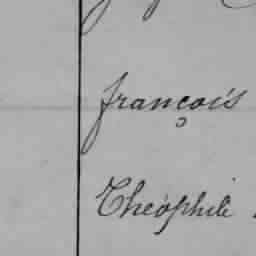 françois
Théophile